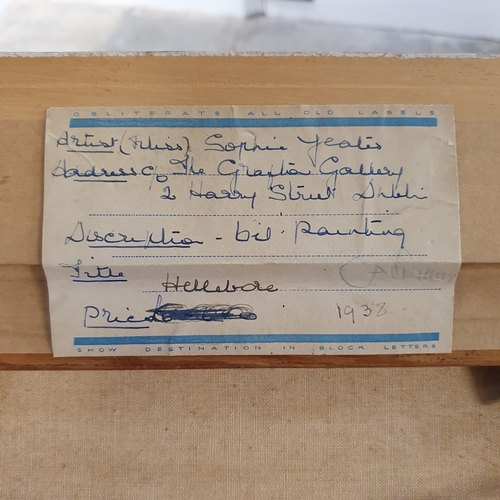 OBLITERATE ALL OLD LABELS
Artist (Miss) Sophie Yeats
Address c/o The Grafton Gallery
2 Harry Street Dublin
Discription - Oil Painting
Title
Hellebore
Price
1938
SHOW DESTINATION IN BLOCK LETTERS